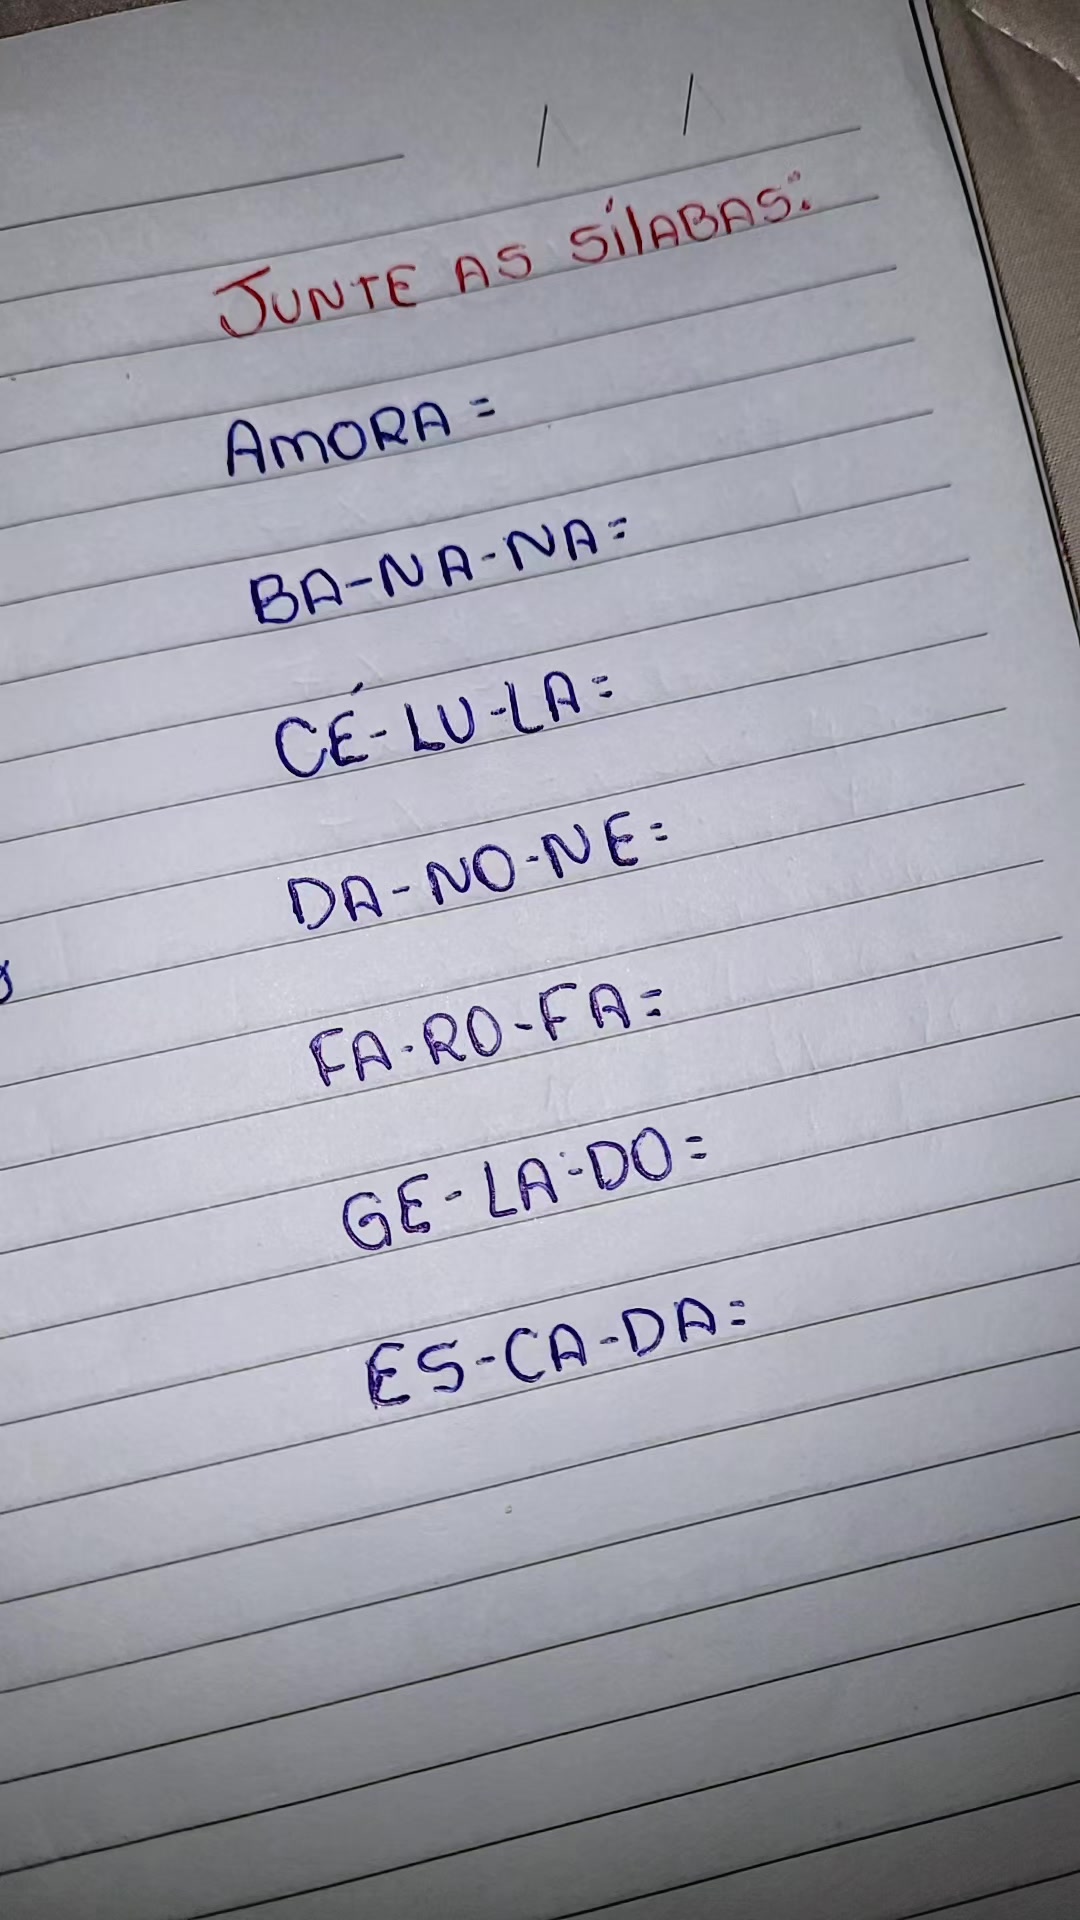 / /
JUNTE AS SÍLABAS:
AMORA =
BA-NA-NA=
CÉ-LU-LA=
DA-NO-NE=
FA-RO-FA=
GE-LA-DO=
ES-CA-DA=